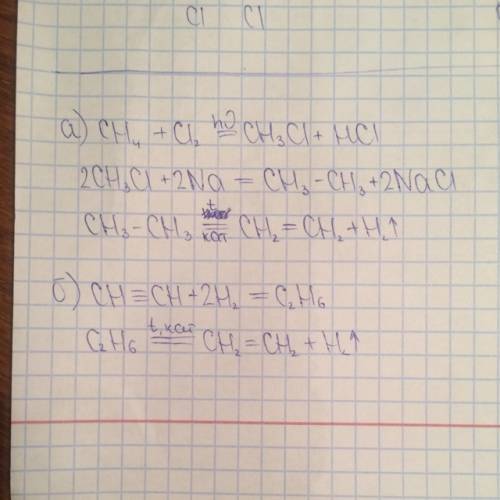 Cl Cl
а) CH₄ + Cl₂ =hν= CH₃Cl + HCl
2CH₃Cl + 2Na = CH₃-CH₃ + 2NaCl
CH₃-CH₃ =t кат= CH₂=CH₂ + H₂↑
б) CH≡CH + 2H₂ = C₂H₆
C₂H₆ =t, кат= CH₂=CH₂ + H₂↑